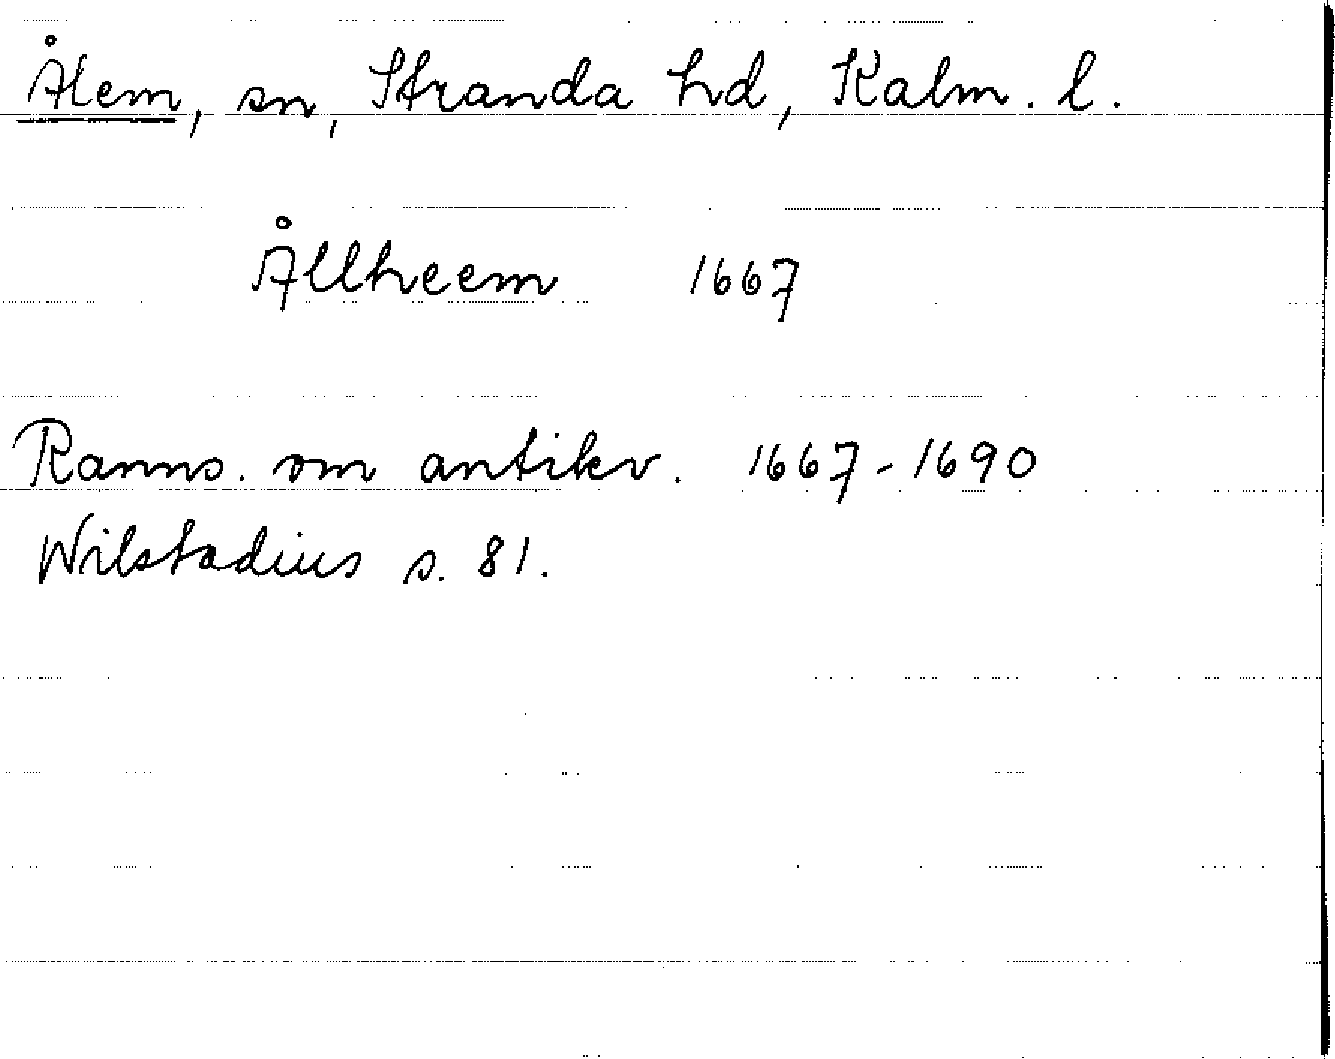 Ålem, sn, Stranda hd, Kalm. l.
Ållheem 1667
Ranns. om antikv. 1667-1690
Wilstadius s. 81.